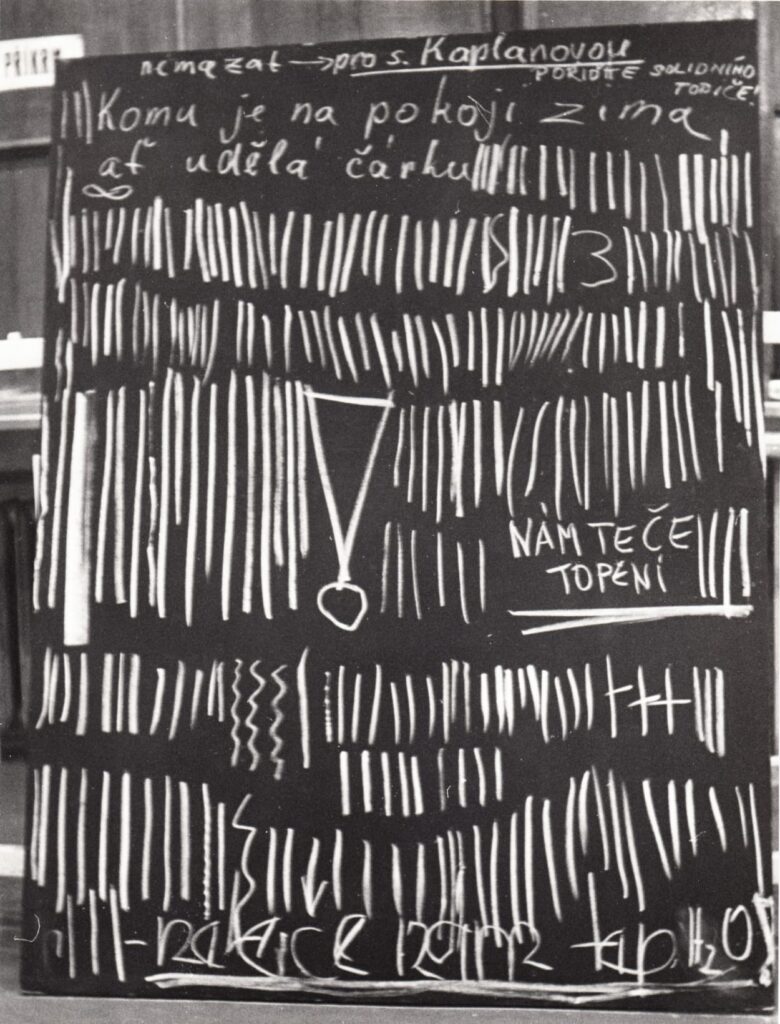 PŘIKR
nemazat → pro s. Kaplanovou
POŘIĎTE SOLIDNÍHO
TOPIČE!
Komu je na pokoji zima
ať udělá čárku
∞
3
NÁM TEČE
TOPENÍ
H₂O